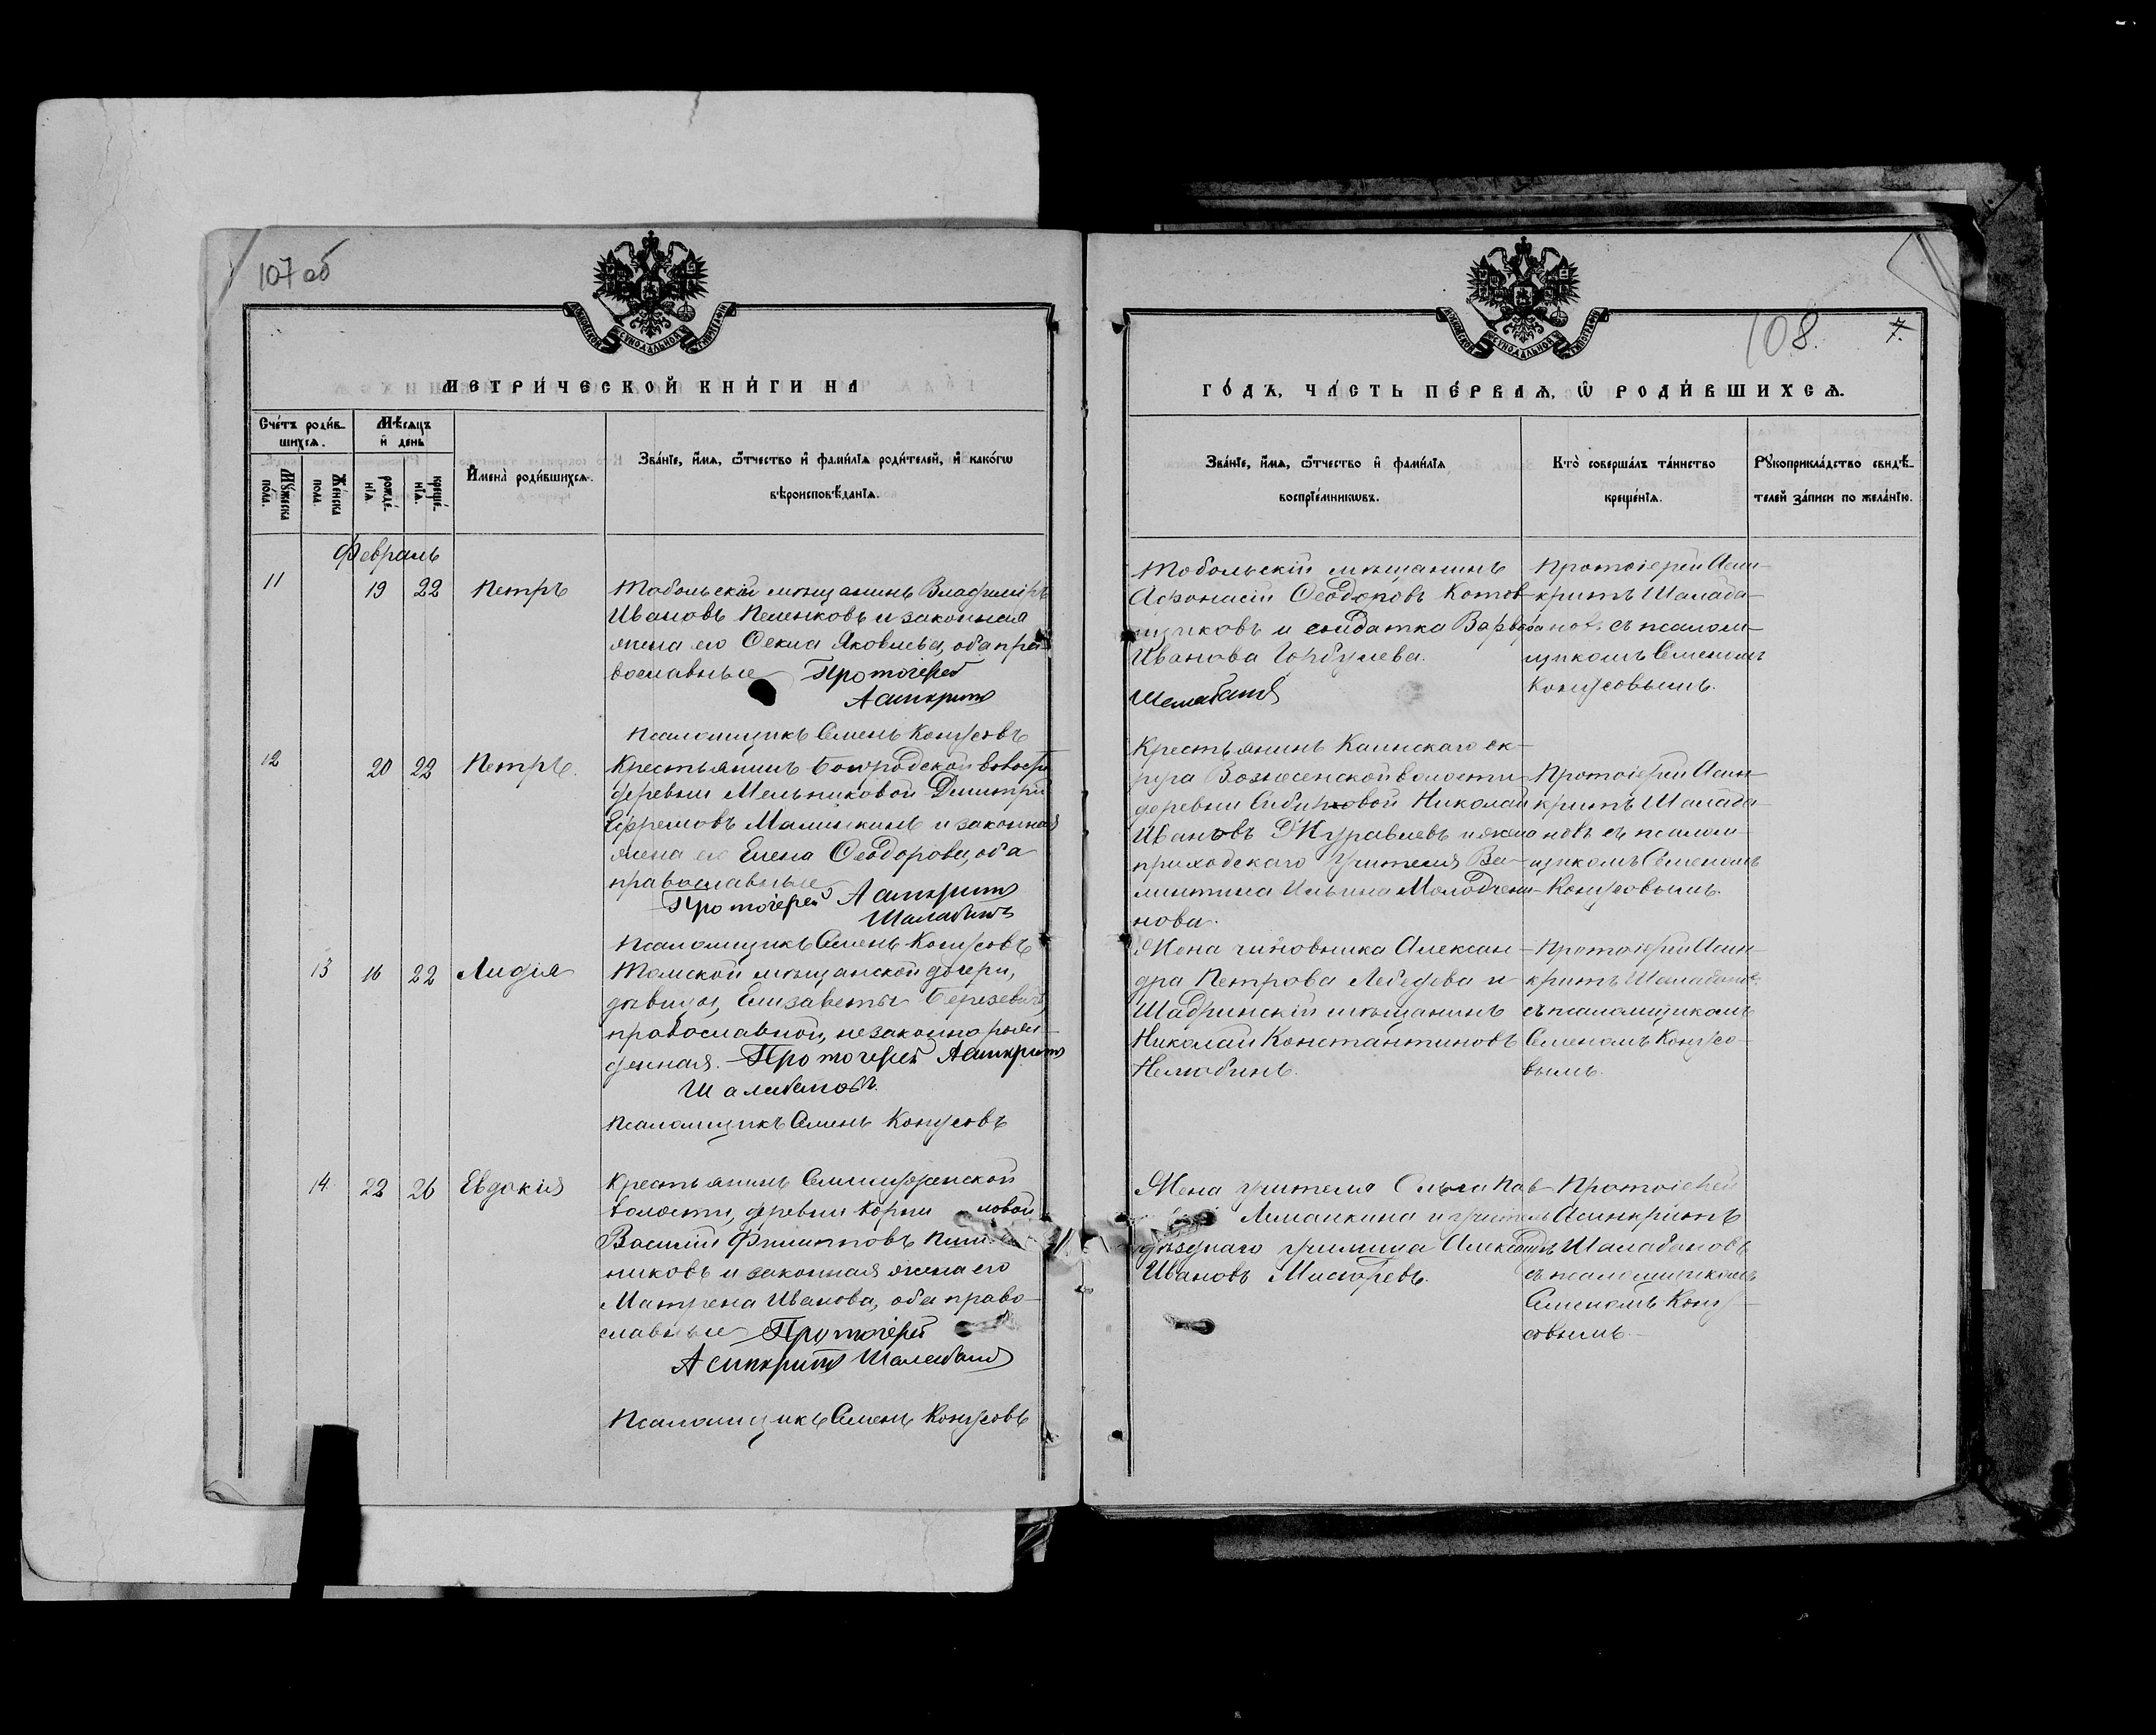 107 об
МОСКОВСКОЙ СѴНОДАЛЬНОЙ ТИПОГРАФІИ
МЕТРИ́ЧЕСКОЙ КНИ́ГИ НА
Сче́тъ роди́в-
шихсѧ.
Мѣ́сѧцъ
и҆ день
Мꙋ́жеска
по́ла.
Же́нска
пола
рожде́-
нїѧ
креще́-
нїѧ.
И҆мена̀ роди́вшихсѧ.
Зва́нїе, и҆́мѧ, ѻ҆́тчество и҆ фами́лїѧ роди́телей, и҆ како́гѡ
вѣроисповѣ́данїѧ.
Февраль
11 19 22 Петръ
Тобольскій мѣщанинъ Владиміръ
Ивановъ Пеленковъ и законная
жена его Ѳекла Яковлева, оба пра-
вославные Протоіерей
Асинкритъ
Псаломщикъ Семенъ Конусовъ
12 20 22 Петръ.
Крестьянинъ
деревни Мельниковой Димитрій
Ефремовъ и законная
жена его Елена Ѳеодорова, оба
православные
Протоіерей Асинкритъ
Шалабановъ
Псаломщикъ Семенъ Конусовъ
13 16 22 Лидія
Томской мѣщанской дочери,
дѣвицы, Елизаветы
православной, незаконно рож-
денная. Протоіерей Асинкритъ
Шалабановъ.
Псаломщикъ Семенъ Конусовъ
14 22 26 Евдокія
Крестьянинъ
волости, деревни ловой
Василій Филипповъ
никовъ и законная жена его
Матрена Иванова, оба право-
славные Протоіерей
Асинкритъ Шалабановъ
Псаломщикъ Семенъ Конусовъ
108. 7.
МОСКОВСКОЙ СѴНОДАЛЬНОЙ ТИПОГРАФІИ
ГО́ДЪ, ЧА́СТЬ ПЕ́РВАѦ, Ѽ РОДИ́ВШИХСѦ.
Зва́нїе, и҆́мѧ, ѻ҆́тчество и҆ фами́лїѧ
воспрїе́мникѡвъ.
Кто̀ соверша́лъ та́инство
креще́нїѧ.
Рꙋкоприкла́дство свидѣ́-
телей за́писи по жела́нїю.
Тобольскій мѣщанинъ
Афонасій Ѳеодоровъ Котов-
щиковъ и солдатка Варвара
Иванова Горбунева.
Шалабановъ
Протоіерей Асин-
критъ Шалаба-
новъ съ псалом-
щикомъ Семеномъ
Конусовымъ.
Крестьянинъ Каинскаго ок-
руга Вознесенской волости
деревни Николай
Ивановъ Журавлевъ и жена
приходскаго учителя Ва-
лентина Ильина Молодчени-
нова.
Протоіерей Асин-
критъ Шалаба-
новъ съ псалом-
щикомъ Семеномъ
Конусовымъ.
Жена чиновника Алексан-
дра Петрова Лебедева и
Шадринскій мѣщанинъ
Николай Константиновъ
Нелюбинъ.
Протоіерей Асин-
критъ Шалабановъ
съ псаломщикомъ
Семеномъ Конусо-
вымъ.
Жена учителя Ольга Пав-
и учитель
уѣзднаго училища Александръ
Ивановъ Мисюревъ.
Протоіерей
Асинкритъ
Шалабановъ
съ псаломщикомъ
Семеномъ Конус-
совымъ.